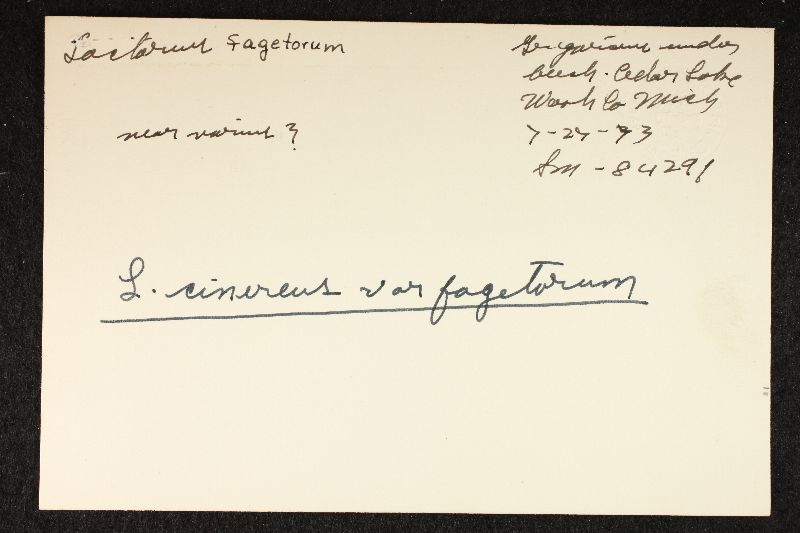 Lactarius fagetorum
near varius ?
Gregarious under
beech. Cedar Lake
Wash Co Mich
7-27-73
Sm - 84291
L. cinereus var fagetorum